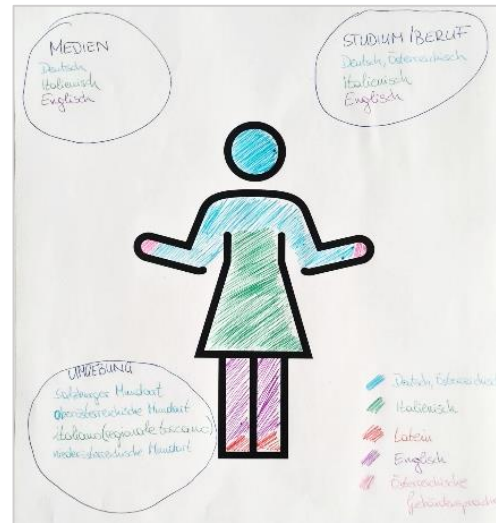 MEDIEN
Deutsch
Italienisch
Englisch
STUDIUM/BERUF
Deutsch, Österreichisch
Italienisch
Englisch
UMGEBUNG
Salzburger Mundart
Oberösterreichische Mundart
italiano (regionale toscano)
niederösterreichische Mundart
Deutsch, Österreichisch
Italienisch
Latein
Englisch
Österreichische
Gebärdensprache